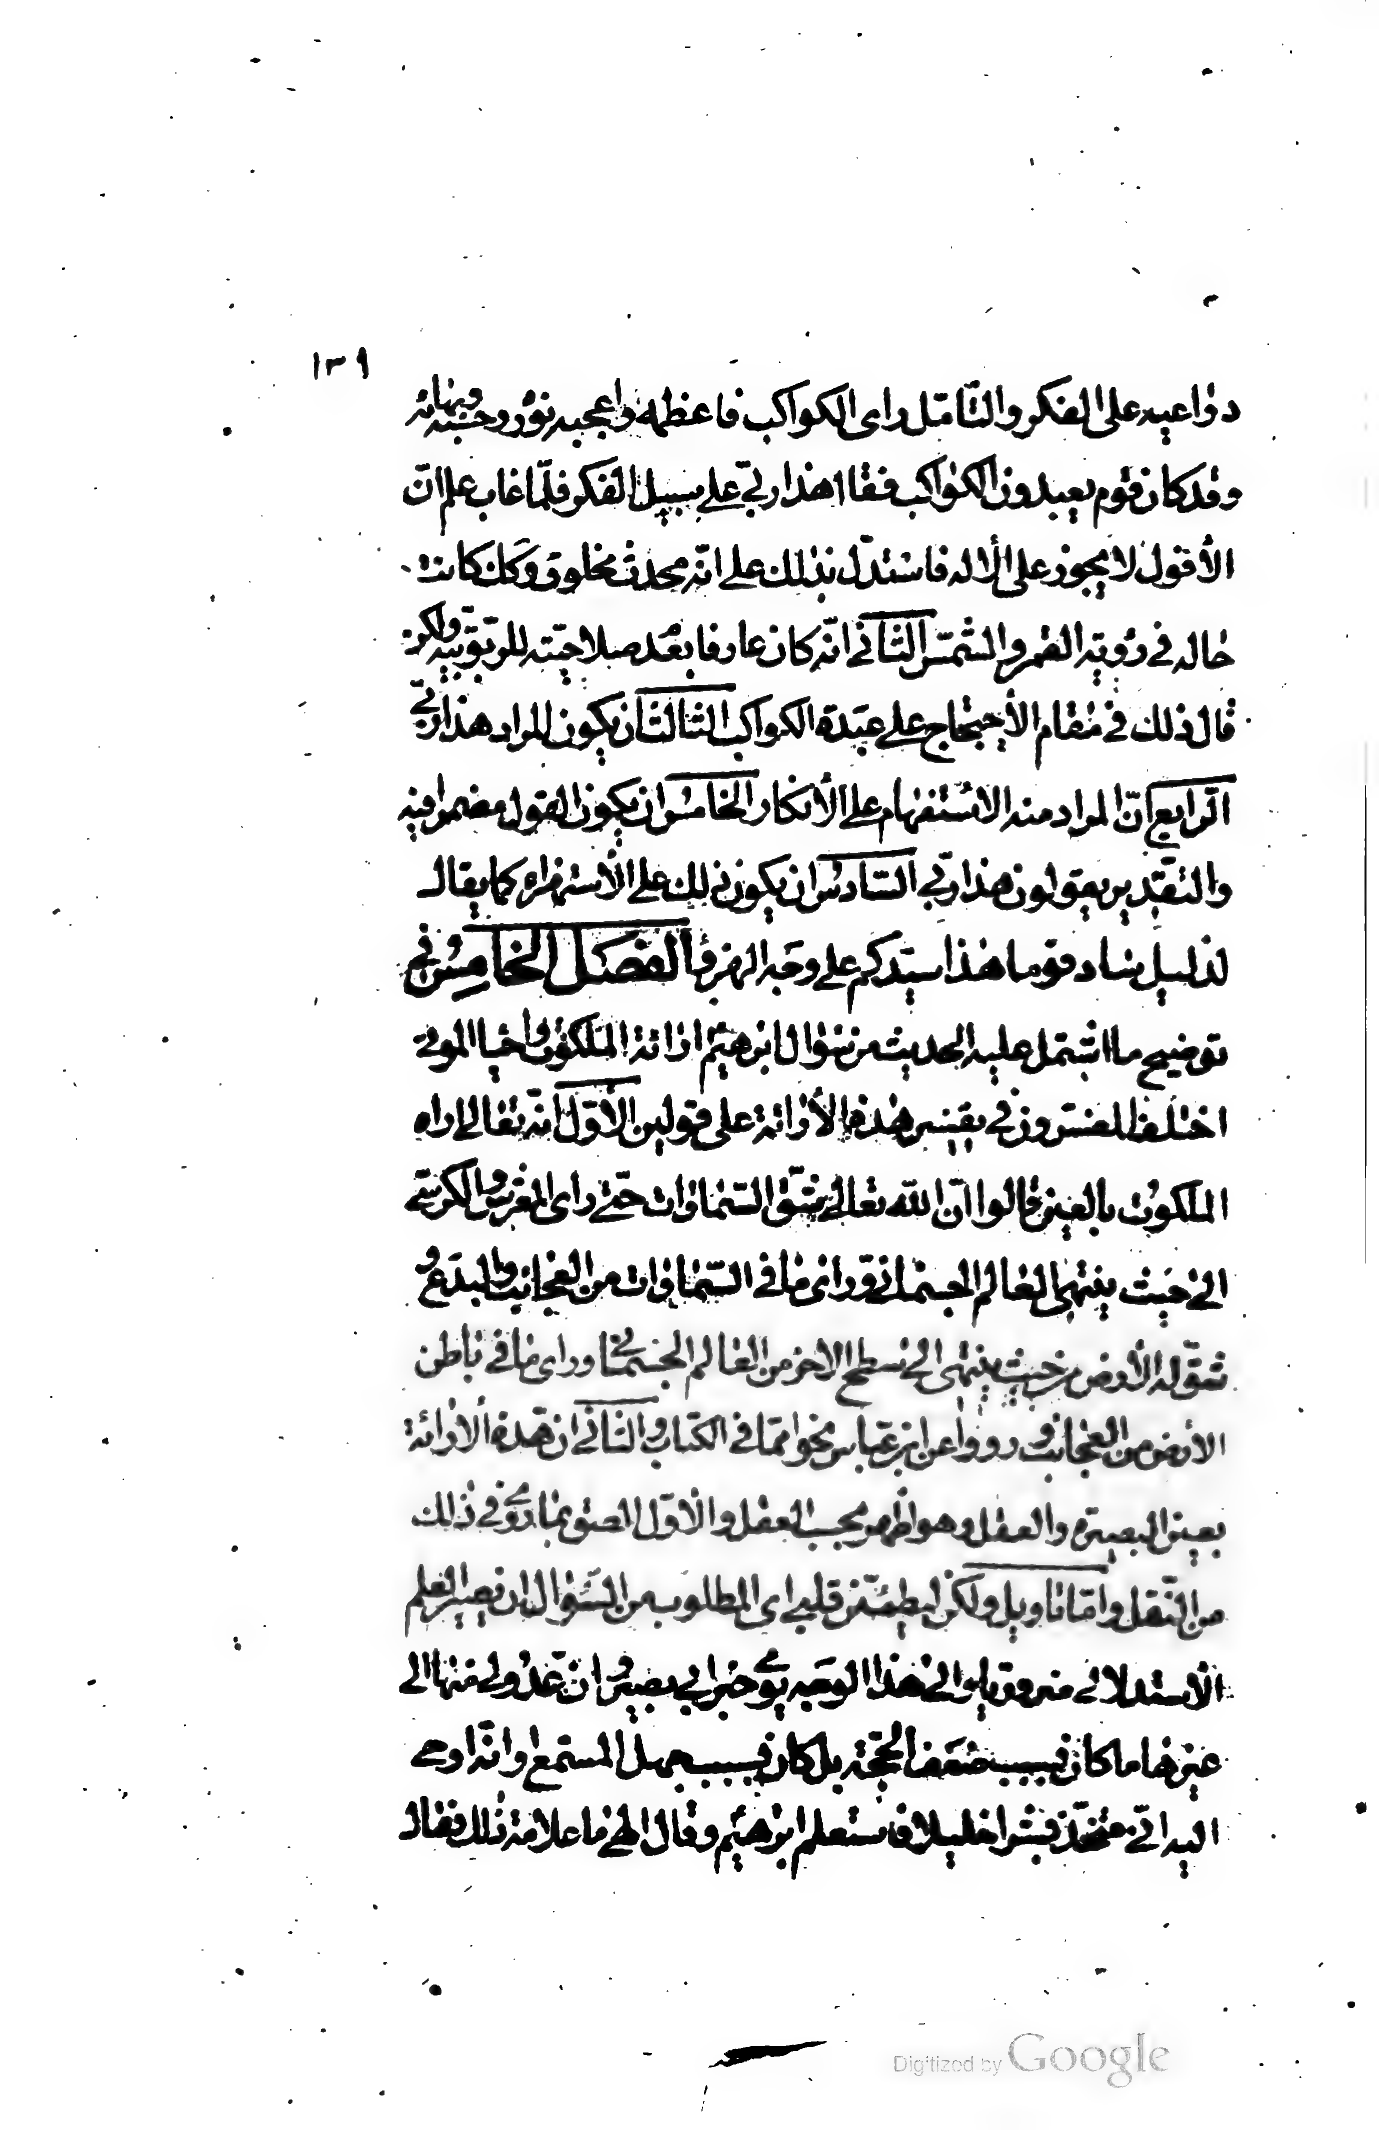 ١٣٩
دواعيه على الفكر والتأمّل راى الكواكب فاعظمه واعجبه نوره وحسنه وبهائه
وقد كان قوم يعبدون الكواكب فقال هذا ربّي على سبيل الفكر فلمّا غاب علم انّ
الأفول لا يجوز على الاله فاستدلّ بذلك على انّه محدث مخلوق وكك كانت
حاله في رؤية القمر والشمس الثاني انّه كان عارفا بعدم صلاحيّته للربوبيّة ولكن
قال ذلك في مقام الأحتجاج على عبدة الكواكب الثالث ان يكون المراد هذا ربّي
الرابع انّ المراد منه الاستفهام على الأنكار الخامس ان يكون القول مضمرا فيه
والتقدير يقولون هذا ربّي السّادس ان يكون ذلك على الأستهزاء كما يقال
لذليل ساد قوما هذا سيّدكم على وجه الهزؤ الفصل الخامس في
توضيح ما اشتمل عليه الحديث من سؤال ابرهيم ارائة الملكوت واحيا الموتى
اختلف المفسّرون في تفسير هذه الأرائة على قولين الأوّل انّه تعالى اراه
الملكوت بالعين قالوا انّ اللّه تعالى شقّ السّماوات حتّى راى العرش والكرسيّ
الى حيث ينتهى العالم الجسمانى وراى ما فى السّماوات من العجائب والبدع و
شقّ له الأرض من حيث ينتهى الى سطح الاخر من العالم الجسمانى وراى ما في باطن
الأرض من العجائب ورووا عن ابن عبّاس نحوا ممّا في الكتاب والثاني ان هذه الأرائة
بعين البصيرة والعقل وهو اظهر بحسب العقل والأوّل الصق بما روي في ذلك
من النّقل وامّا تاويل ولكن ليطمئنّ قلبي اى المطلوب من السّؤال ان يصير العلم
الأستدلالى ضروريّا والى هذا الوجه يؤمى خبر ابى بصير وان عدولى منها الى
غيرها ما كان بسبب ضعف الحجّة بل كان بسبب جهل المستمع او انّه اوحى
اليه انّى متّخذ بشرا خليلا فاستعلم ابرهيم وقال الهى ما علامة ذلك فقال
Digitized by Google